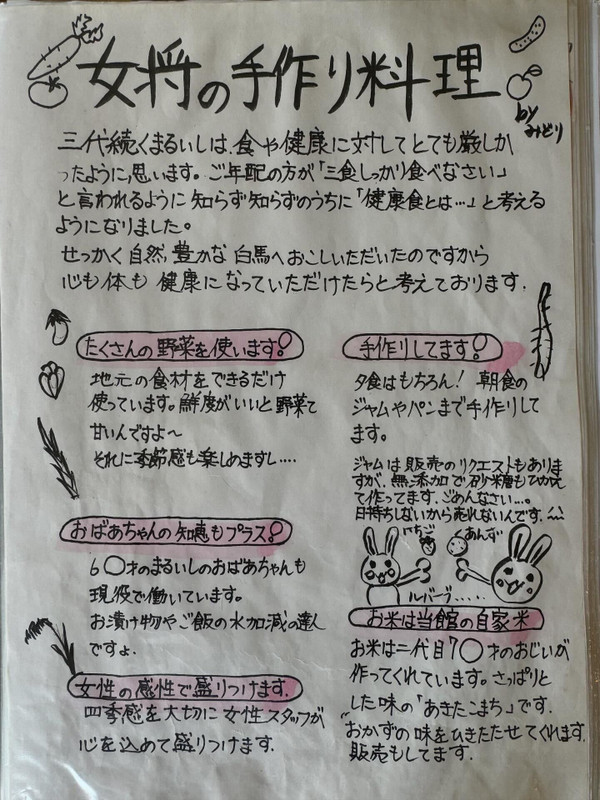 女将の手作り料理
by
みどり
三代続くまるいしは、食や健康に対してとても厳しか
ったように思います。ご年配の方が「三食しっかり食べなさい」
と言われるように知らず知らずのうちに「健康食とは…」と考える
ようになりました。
せっかく自然豊かな白馬へおこしいただいたのですから
心も体も健康になっていただけたらと考えております.
たくさんの野菜を使います!
地元の食材をできるだけ
使っています。鮮度がいいと野菜て
甘いんですよ～
それに季節感も楽しめますし....
おばあちゃんの知恵もプラス!
6〇才のまるいしのおばあちゃんも
現役で働いています。
お漬け物やご飯の水加減の達人
ですよ.
女性の感性で盛りつけます.
四季感を大切に女性スタッフが
心を込めて盛りつけます.
手作りしてます!
夕食はもちろん! 朝食の
ジャムやパンまで手作りして
ます。
ジャムは販売のリクエストもありま
すが、無添加で砂糖もひかえ
て作ってます。ごめんなさい…。
日持ちしないから売れないんです.
いちご
あんず
ルバーブ.....
お米は当館の自家米
お米は二代目7〇才のおじいが
作ってくれています。さっぱりと
した味の「あきたこまち」です.
おかずの味をひきたたせてくれます.
販売もしてます.